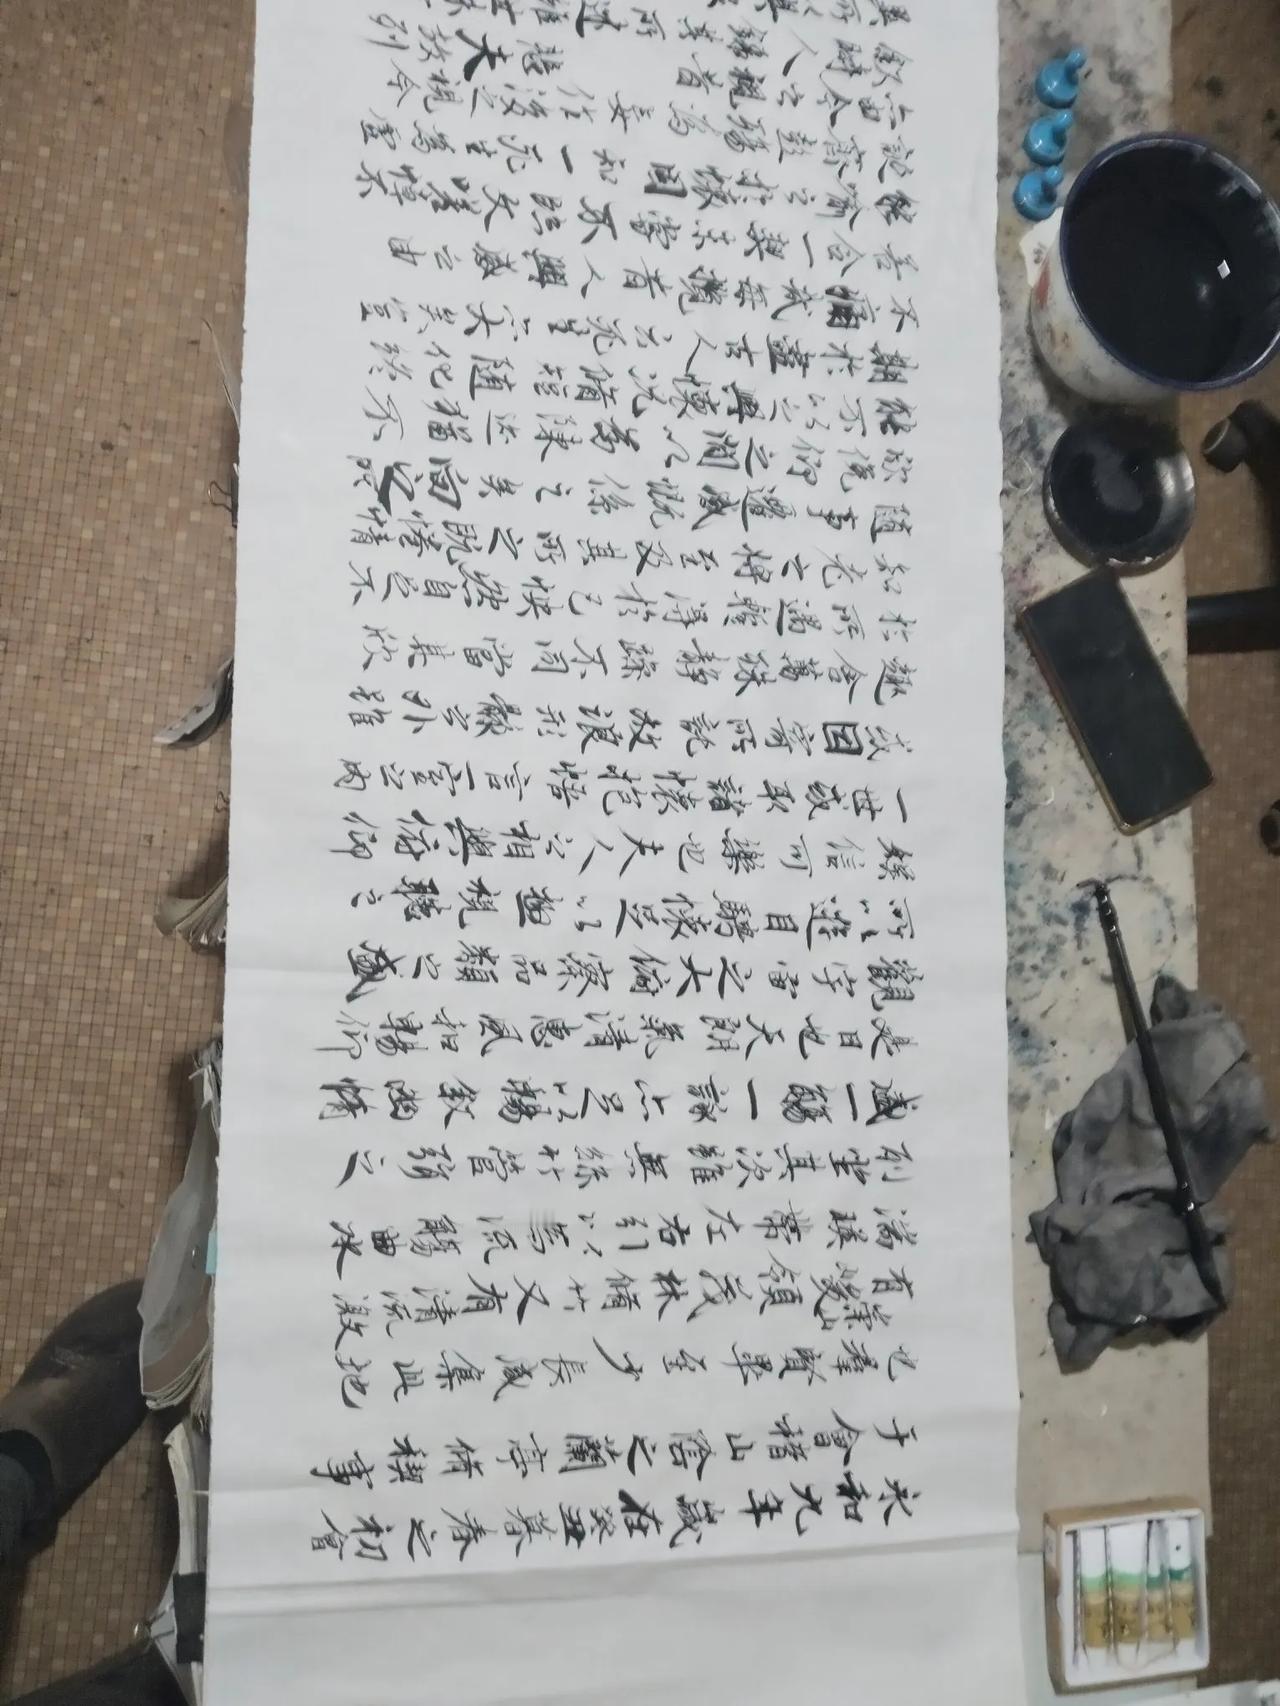 永和九年歲在癸丑暮春之初會
于會稽山陰之蘭亭脩禊事
也群賢畢至少長咸集此地
有崇山峻領茂林脩竹又有清流激
湍暎帶左右引以為流觴曲水
列坐其次雖無絲竹管弦之
盛一觴一詠亦足以暢敘幽情
是日也天朗氣清惠風和暢仰
觀宇宙之大俯察品類之盛
所以遊目騁懷足以極視聽之
娛信可樂也夫人之相與俯仰
一世或取諸懷抱悟言一室之內
或因寄所託放浪形骸之外雖
趣舍萬殊靜躁不同當其欣
於所遇暫得於己快然自足不
知老之將至及其所之既惓情
隨事遷感慨係之矣向之所
欣俛仰之閒以為陳迹猶不
能不以之興懷況脩短隨化終
期於盡古人云死生亦大矣豈
不痛哉每攬昔人興感之由
若合一契未嘗不臨文嗟悼不
能喻之於懷固知一死生為虛
誕齊彭殤為妄作後之視今
亦由今之視昔悲夫故列
敘時人錄其所述雖世殊
異所以興